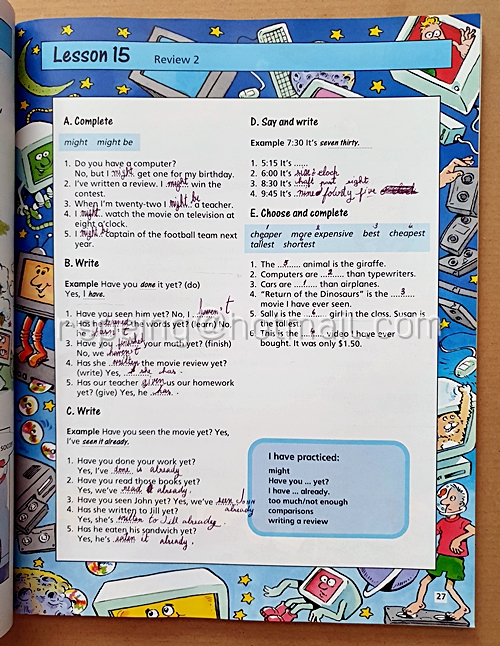 Lesson 15 Review 2
A. Complete
might might be
1. Do you have a computer?
No, but I might get one for my birthday.
2. I've written a review. I might win the
contest.
3. When I'm twenty-two I might be a teacher.
4. I might watch the movie on television at
eight o'clock.
5. I might be captain of the football team next
year.
B. Write
Example Have you done it yet? (do)
Yes, I have.
1. Have you seen him yet? No, I haven't
2. Has he the words yet? (learn) No,
he
3. Have you finish your math yet? (finish)
No, we haven't
4. Has she written the movie review yet?
(write) Yes, she has.
5. Has our teacher given us our homework
yet? (give) Yes, he has.
C. Write
Example Have you seen the movie yet? Yes,
I've seen it already.
1. Have you done your work yet?
Yes, I've done is already
2. Have you read those books yet?
Yes, we've read already.
3. Have you seen John yet? Yes, we've seen John
already
4. Has she written to Jill yet?
Yes, she's written to Jill already.
5. Has he eaten his sandwich yet?
Yes, he's it already.
D. Say and write
Example 7:30 It's seven thirty.
1. 5:15 It's ......
2. 6:00 It's six o'clock
3. 8:30 It's half past eight
4. 9:45 It's nine fourty five
E. Choose and complete
1 6 3 4
cheaper more expensive best cheapest
tallest shortest
1. The 5 animal is the giraffe.
2. Computers are 2 than typewriters.
3. Cars are 1 than airplanes.
4. "Return of the Dinosaurs" is the 3
movie I have ever seen.
5. Sally is the girl in the class. Susan is
the tallest.
6. This is the video I have ever
bought. It was only $1.50.
I have practiced:
might
Have you ... yet?
I have ... already.
too much/not enough
comparisons
writing a review
27